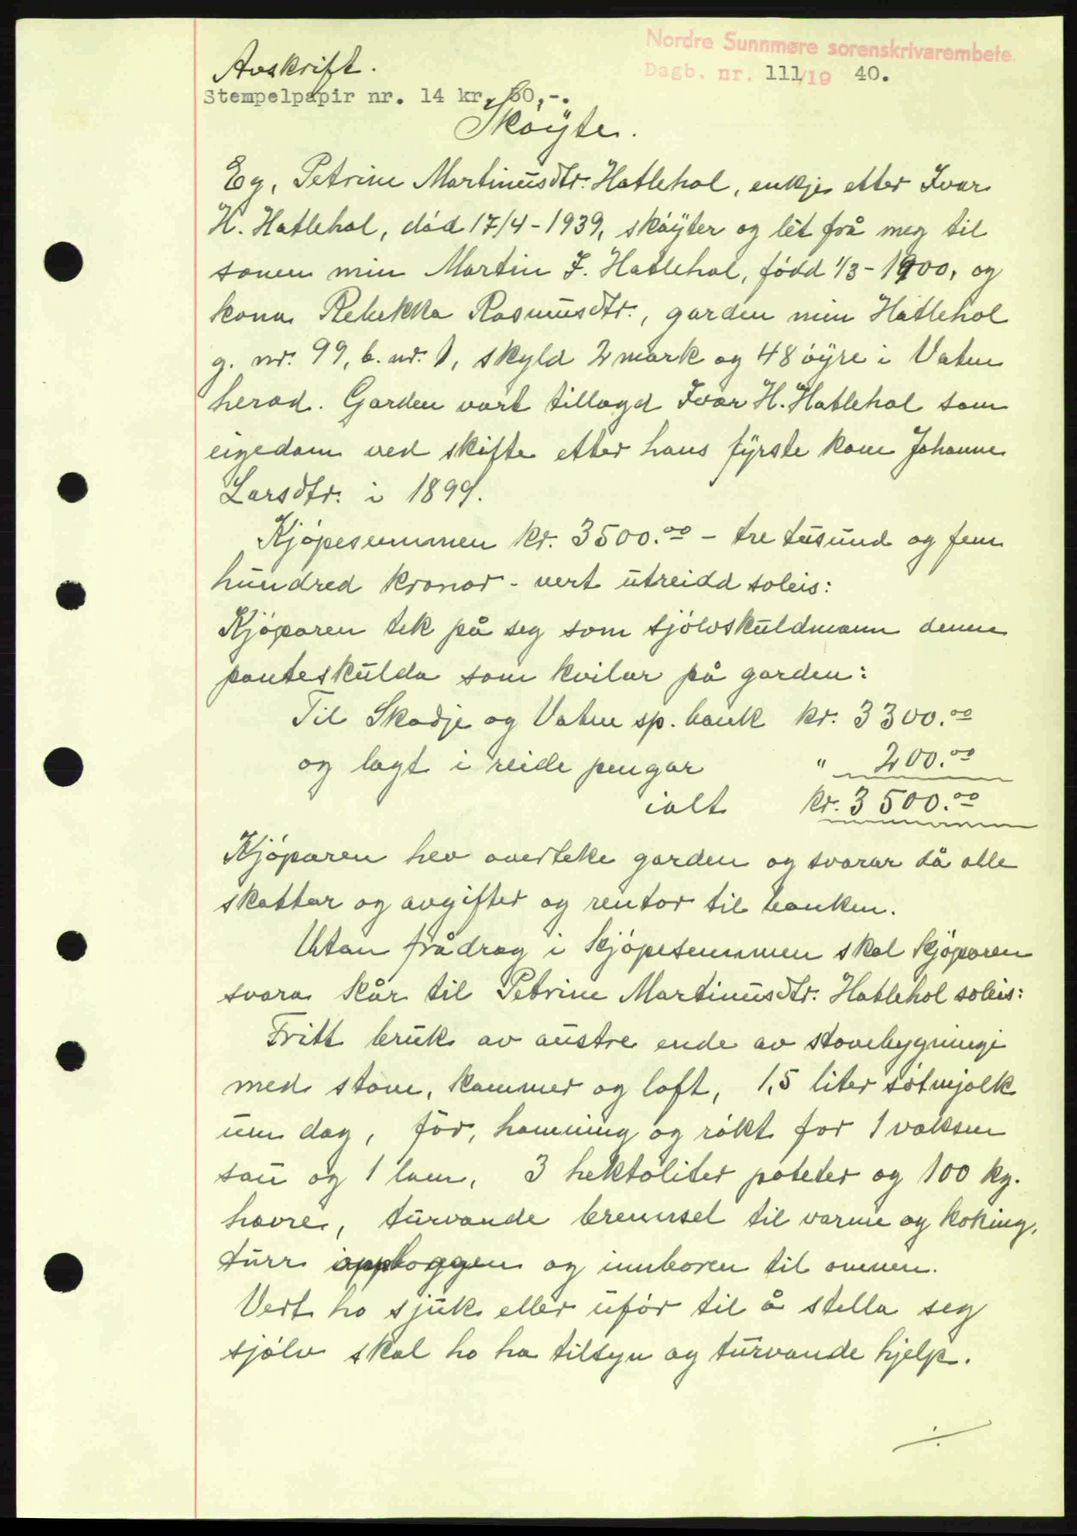 Nordre Sunnmøre sorenskrivarembete
Dagb. nr. 111/19 40.
Avskrift.
Stempelpapir nr. 14 kr. 60,-.
Skøyte.
Eg, Petrine Martinusdtr. Hatlehol, enkje etter Ivar
H. Hatlehol, død 17/4-1939, skøyter og let frå meg til
sonen min Martin I. Hatlehol, fødd 1/3-1900, og
kona Rebekka Rasmusdtr., garden min Hatlehol
g. nr. 99, b. nr. 1, skyld 2 mark og 48 øyre i Vatne
herad. Garden vart tillagd Ivar H. Hatlehol som
eigedom ved skifte etter hans fyrste kone Johanne
Larsdtr. i 1899.
Kjøpesummen kr. 3500.00 - tre tusund og fem
hundred kronor - vert utreidd soleis:
Kjøparen tek på seg som sjølvskuldmann denne
panteskulda som kvilar på garden:
Til Skodje og Vatne sp. bank kr. 3300.00
og lagt i reide pengar " 200.00
ialt kr. 3500.00
Kjøparen hev overteke garden og svarar då alle
skattar og avgifter og rentor til banken.
Utan frådrag i kjøpesummen skal kjøparen
svara kår til Petrine Martinusdtr. Hatlehol soleis:
Fritt bruk av austre ende av stovebygningi
med stove, kammer og loft, 1,5 liter søtmjølk
um dag, fôr, hamning og røkt for 1 vaksen
sau og 1 lam, 3 hektoliter poteter og 100 kg.
havre, turvande brennsel til varme og koking,
turr upphoggen og innboren til omnen.
Vert ho sjuk eller ufør til å stella seg
sjølv skal ho ha tilsyn og turvande hjelp.
./.